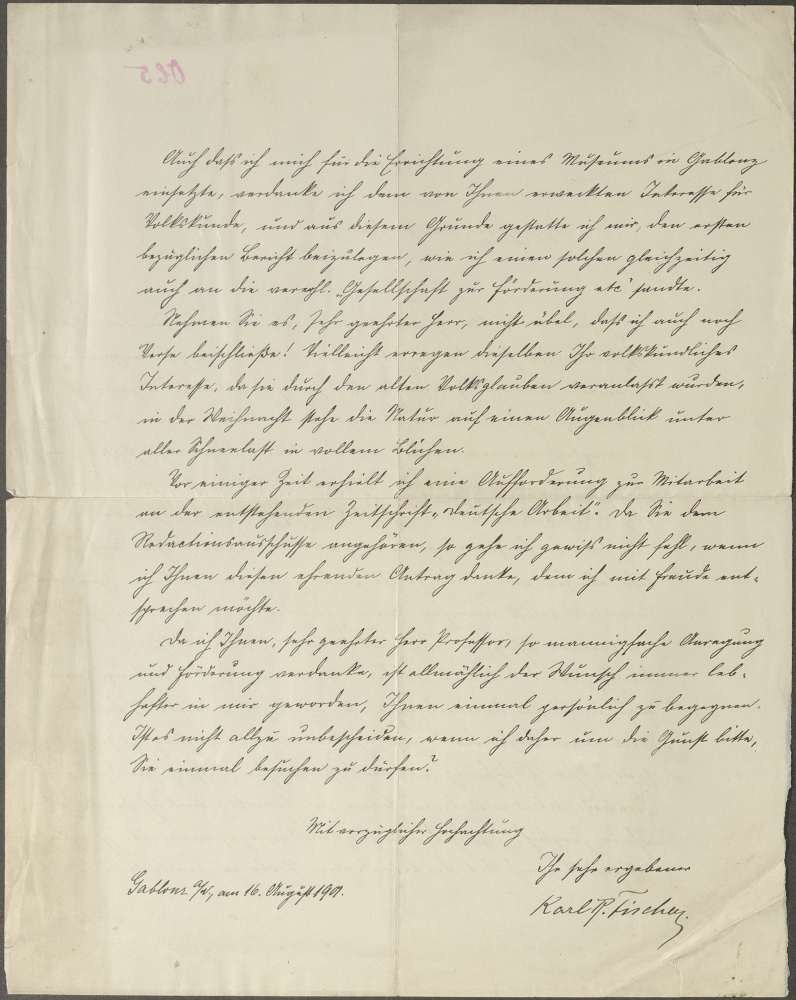 Auch dass ich mich für die Errichtung eines Museums in Gablonz
einsetzte, verdanke ich dem von Ihnen erweckten Interesse für
Volkskunde, und aus diesem Grunde gestatte ich mir, den ersten
bezüglichen Bericht beizulegen, wie ich einen solchen gleichzeitig
auch an die verehrl. „Gesellschaft zur Förderung etc“ sandte.
Nehmen Sie es, sehr geehrter Herr, nicht übel, dass ich auch noch
Verse beischließe! Vielleicht erregen dieselben Ihr volkskundliches
Interesse, da sie durch den alten Volksglauben veranlasst wurden,
in der Weihnacht stehe die Natur auf einen Augenblick unter
aller Schneelast in vollem Blühen.
Vor einiger Zeit erhielt ich eine Aufforderung zur Mitarbeit
an der entstehenden Zeitschrift „Deutsche Arbeit“. Da Sie dem
Redactionsausschusse angehören, so gehe ich gewiss nicht fehl, wenn
ich Ihnen diesen ehrenden Antrag danke, dem ich mit Freude ent-
sprechen möchte.
Da ich Ihnen, sehr geehrter Herr Professor, so mannigfache Anregung
und Förderung verdanke, ist allmählich der Wunsch immer leb-
hafter in mir geworden, Ihnen einmal persönlich zu begegnen.
Ist es nicht allzu unbescheiden, wenn ich daher um die Gunst bitte,
Sie einmal besuchen zu dürfen?
Mit vorzüglicher Hochachtung
Ihr sehr ergebener
Gablonz a/N, am 16. August 1901.
Karl R. Fischer.